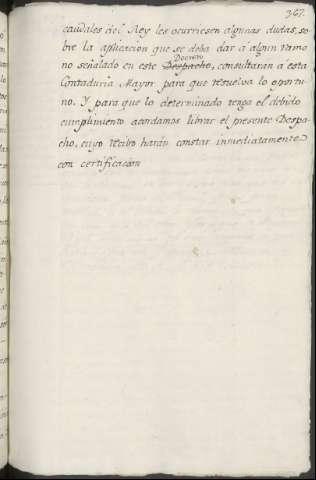 367.
caudales del Rey les ocurriesen algunas dudas, so
bre la aplicacion que se deba dar à algun ramo
Decreto
no señalado en este Despacho, consultaran à esta
Contaduria Mayor para que resuelva lo oportu
no. Y para que lo determinado tenga el debido
cumplimiento acordamos librar el presente Despa
cho, cuyo recibo haràn constar inmediatamente
con certificacion